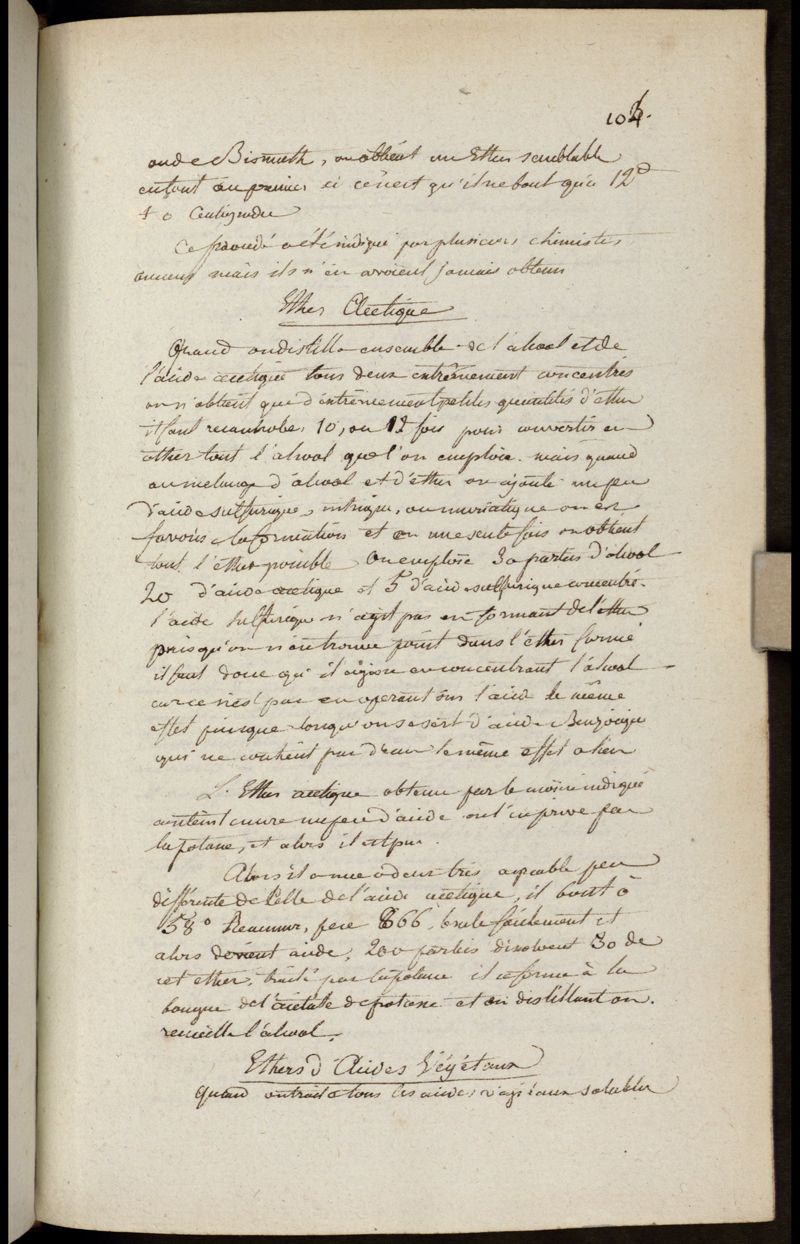 104.
ou de Bismuth, on obtient un Ether semblable
en tout au premier si ce n'est qu'il ne bout qu'à 12d
+ 0 Centigrade
Ce procédé a été indiqué par plusieurs chimistes
anciens mais ils n'en avoient jamais obtenu
Ether Acetique
Quand on distille ensemble de l'alcool et de
l'acide acetique tous deux extrêmement concentrés
on n'obtient que d'extrêmement petites quantités d'ether
il faut recohober 10, ou 12 fois pour convertir en
ether tout l'alcool que l'on emploie. mais quand
au melange d'alcool et d'ether on ajoute un peu
d'acide sulfurique, nitrique, ou muriatique on en
favorise la formation et en une seule fois on obtient
tout l'ether possible On emploie 30 parties d'alcool
20 d'acide acetique et 5 d'acide sulfurique concentré.
l'acide sulfurique n'agit pas en formant de l'ether
puisqu'on n'en trouve point dans l'ether formé
il faut donc qu'il agisse en concentrant l'alcool
car ce n'est pas en operant sur l'acide le même
effet puisque lorsqu'on se sert d'acide Benzoique
qui ne contient pas d'eau le même effet a lieu
L'Ether acetique obtenu par le moien indiqué
contient encore un peu d'acide on l'en prive par
la potasse, et alors il est pur.
Alors il a une odeur très agreable peu
differente de celle de l'acide acetique, il bout à
58° Reaumur, pese 866, brule facilement et
alors devient acide, 200 parties dissolvent 30 de
cet ether, traité par la potasse il se forme à la
longue de l'acetate de potasse et en distillant on
recueille l'alcool.
Ethers d'Acides Végétaux
Quand on traite tous les acides végétaux solubles